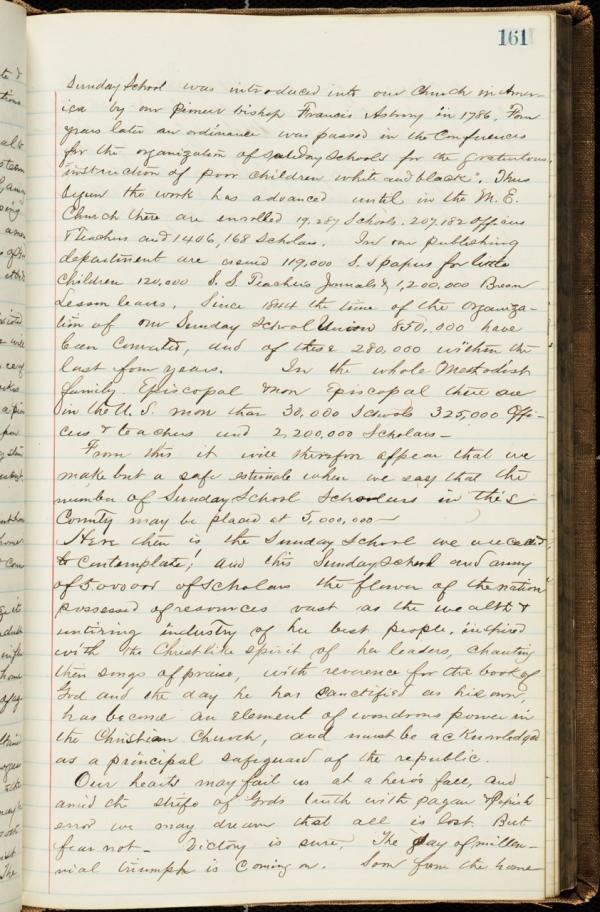 161
Sunday School was introduced into our Church in Amer-
ica by our pioneer bishop Francis Asbury in 1786. Four
years later an ordinance was passed in the Conferences
for the organization of Sunday Schools for the gratuitous
"instruction of poor children white and black". Thus
begun the work has advanced until in the M. E.
Church there are enrolled 19,287 Schools. 207,182 officers
& Teachers and 1406,168 Scholars. In our publishing
department are issued 119,000 S. S papers for little
children 120,000 S. S. Teachers Journals & 1,200,000 Berean
Lesson leaves. Since 1844 the time of the organiza-
tion of our Sunday School Union 850,000 have
been converted, and of these 280,000 within the
last four years. In the whole Methodist
family Episcopal & non Episcopal there are
in the U. S. more than 30,000 Schools 325,000 Offi-
cers & teachers and 2,200,000 Scholars—
From this it will therefore appear that we
make but a safe estimate when we say that the
number of Sunday School Scholars in this
County may be placed at 5,000,000—
Here then is the Sunday School we are called
to contemplate! and this Sunday School and army
of 5.000000 of Scholars the flower of the nation
possessed of resources vast as the wealth &
untiring industry of her best people, inspired
with the Christlike spirit of her leaders, chanting
their songs of praise, with reverence for the book of
God and the day he has sanctified as his own,
has become an element of wondrous power in
the Christian Church, and must be acknowledged
as a principal safeguard of the republic.
Our hearts may fail us at a hero's fall, and
amid the strife of Gods truth with pagan & Popish
error we may dream that all is lost. But
fear not— Victory is sure. The day of millen-
nial triumph is coming on. Soon from the home